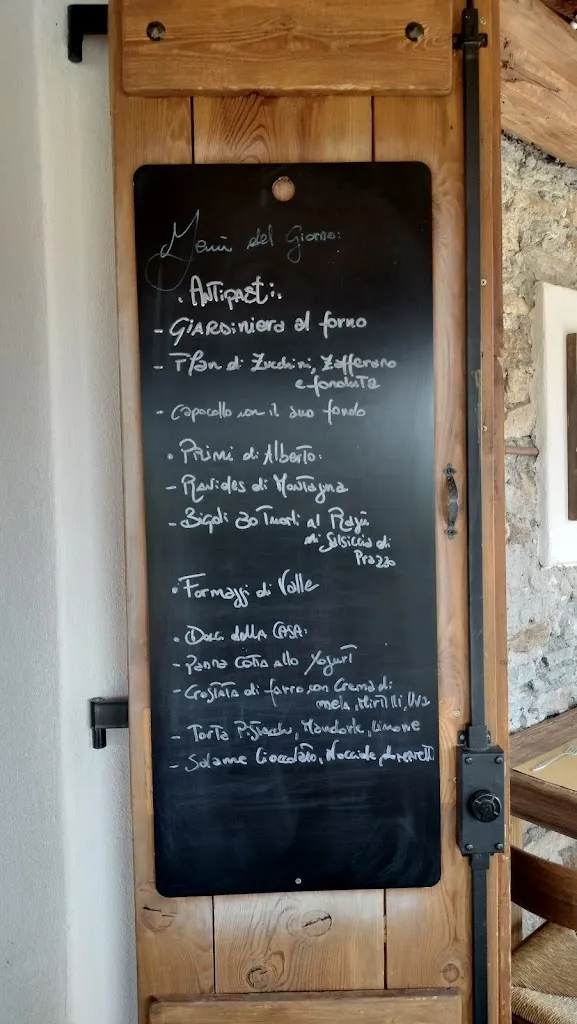 Menù del Giorno:
. Antipasti:.
- Giardiniera al forno
- Flan di Zucchini, Zafferano
e fonduta
- Capocollo con il suo fondo
• Primi di Alberto:
- Ravioles di Montagna
- Bigoli 30 Tuorli al Ragù
di Salsiccia di
Prazzo
• Formaggi di Valle
• Dolci della CASA:
- Panna cotta allo Yogurt
- Crostata di farro con Crema di
mela, Mirtilli, Uva
- Torta Pistacchi, Mandorle, Limone
- Salame Cioccolato, Nocciole, Amaretti